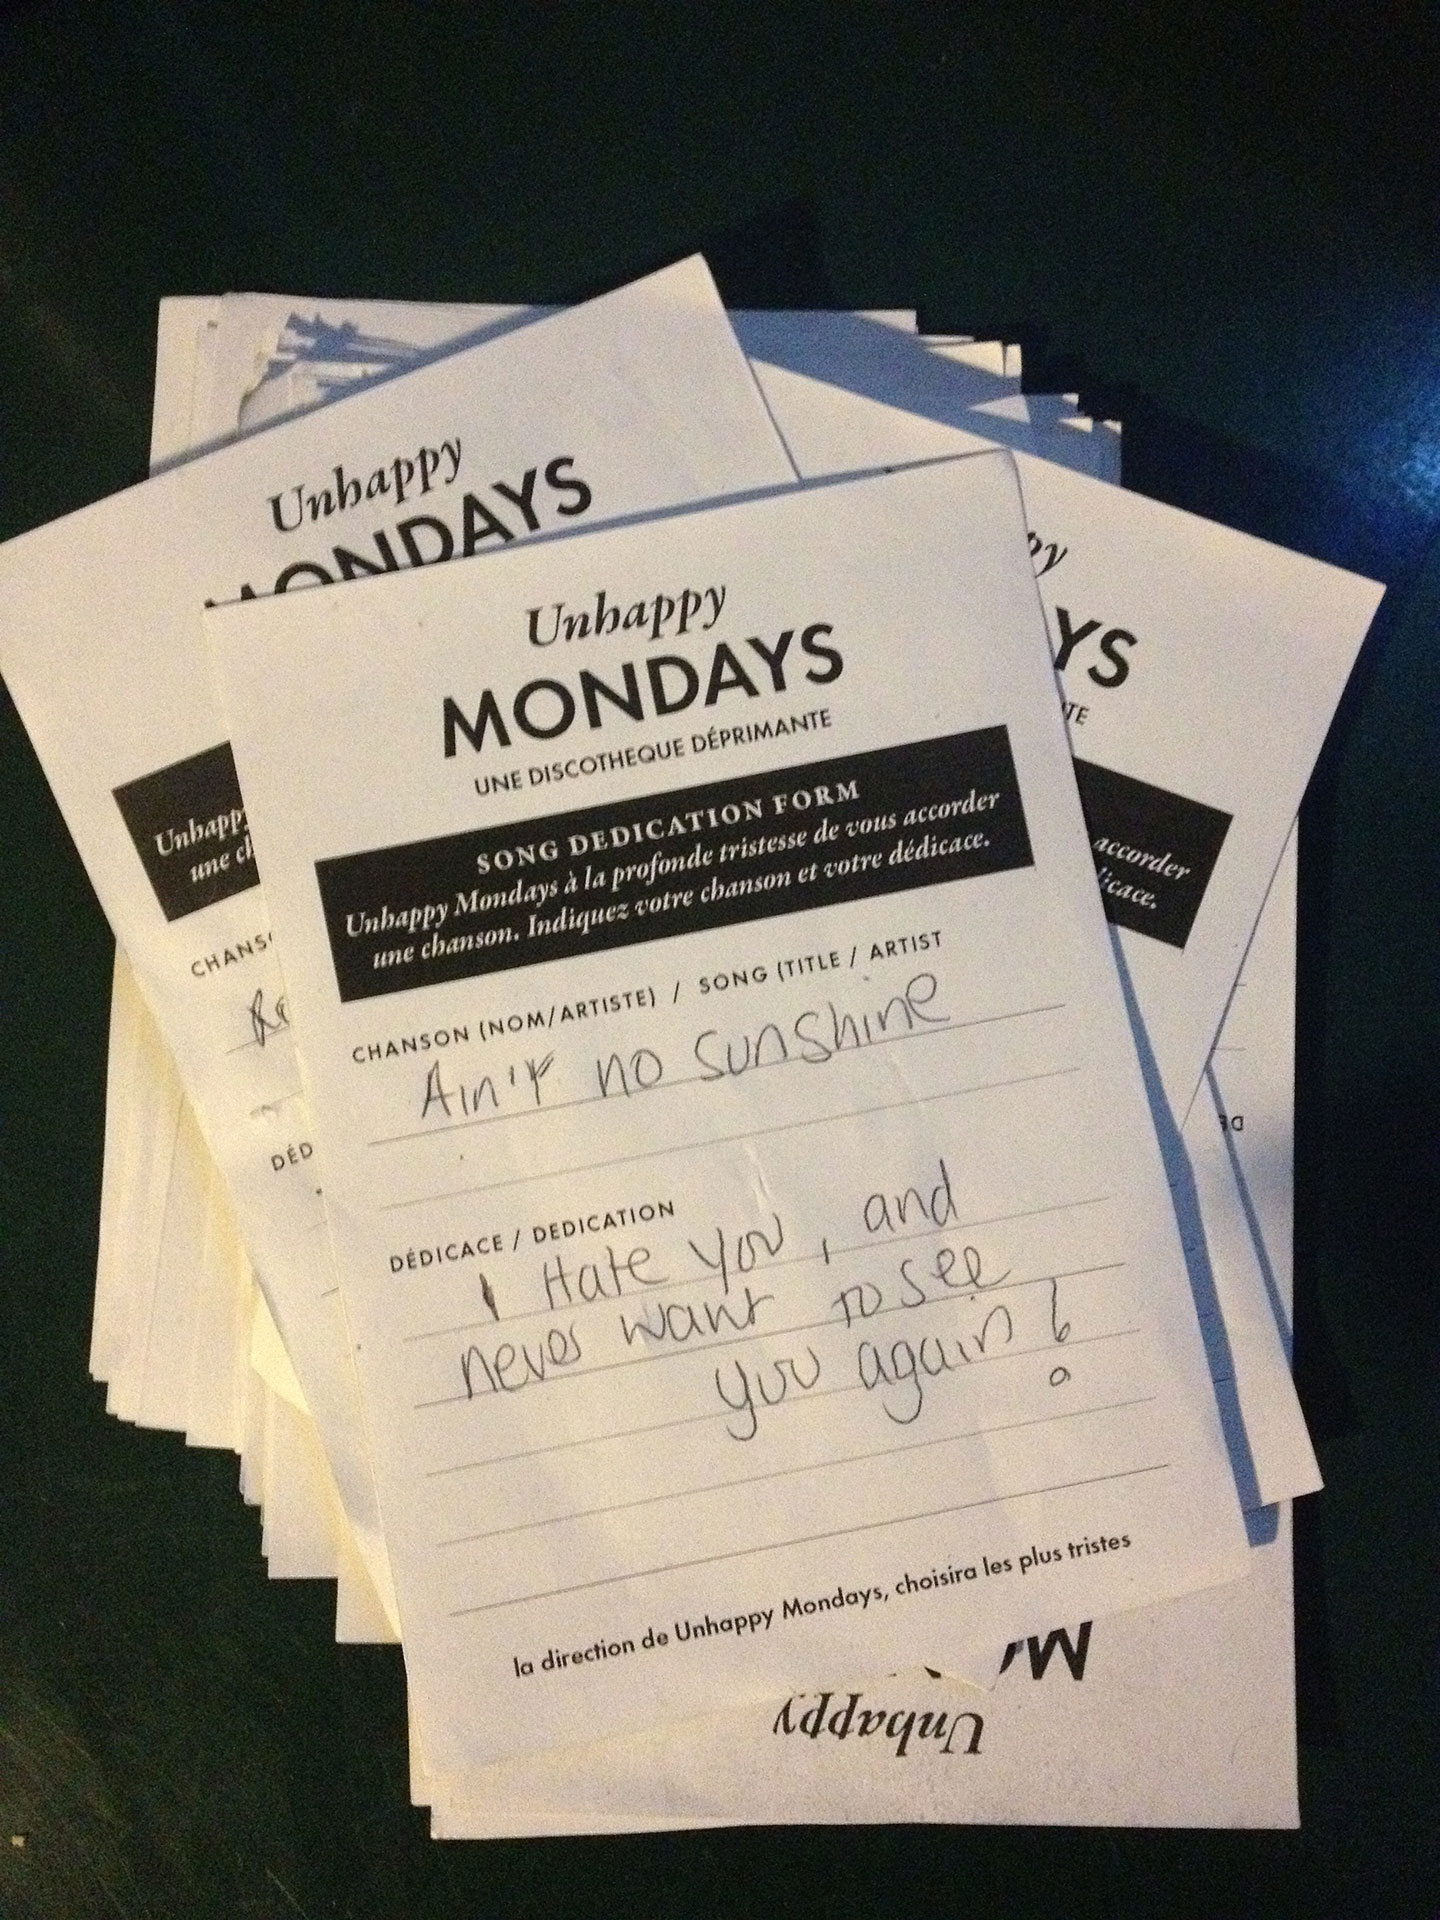 Unhappy
MONDAYS
Unhappy
une
CHANS
DÉD
Unhappy
MONDAYS
UNE DISCOTHEQUE DÉPRIMANTE
SONG DEDICATION FORM
Unhappy Mondays à la profonde tristesse de vous accorder
une chanson. Indiquez votre chanson et votre dédicace.
CHANSON (NOM/ARTISTE) / SONG (TITLE / ARTIST
Ain't no sunshine
DÉDICACE / DEDICATION
I Hate you, and
never want to see
you again!
la direction de Unhappy Mondays, choisira les plus tristes
py
YS
TE
accorder
icace.
DE
Unhappy
M